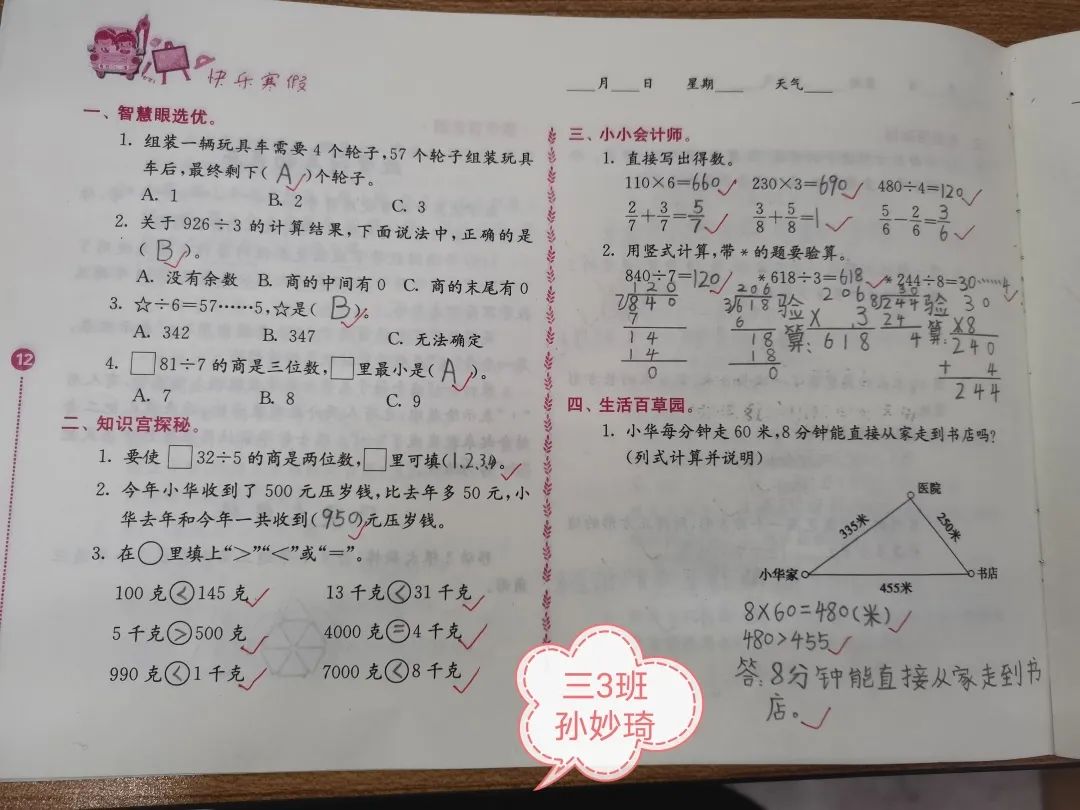 快乐寒假
___月___日 星期___ 天气___
一、智慧眼选优。
1. 组装一辆玩具车需要4个轮子,57个轮子组装玩具
车后,最终剩下(A)个轮子。
A. 1 B. 2 C. 3
2. 关于926÷3的计算结果,下面说法中,正确的是
(B)。
A. 没有余数 B. 商的中间有0 C. 商的末尾有0
3. ☆÷6=57……5,☆是(B)。
A. 342 B. 347 C. 无法确定
4. □81÷7的商是三位数,□里最小是(A)。
A. 7 B. 8 C. 9
二、知识宫探秘。
1. 要使□32÷5的商是两位数,□里可填(1,2,3,4)。
2. 今年小华收到了500元压岁钱,比去年多50元,小
华去年和今年一共收到(950)元压岁钱。
3. 在○里填上“>”“<”或“=”。
100克<145克 13千克<31千克
5千克>500克 4000克=4千克
990克<1千克 7000克<8千克
12
三、小小会计师。
1. 直接写出得数。
110×6=660 230×3=690 480÷4=120
2/7+3/7=5/7 3/8+5/8=1 5/6-2/6=3/6
2. 用竖式计算,带*的题要验算。
840÷7=120 *618÷3=618 *244÷8=30……4
120
7)840
7
14
14
0
206
3)618
6
18
18
0
验算:
206
×3
618
30
8)244
24
4
验算:
30
×8
240
+ 4
244
四、生活百草园。
1. 小华每分钟走60米,8分钟能直接从家走到书店吗?
(列式计算并说明)
医院
335米 250米
小华家 书店
455米
8×60=480(米)
480>455
答:8分钟能直接从家走到书
店。
三3班
孙妙琦